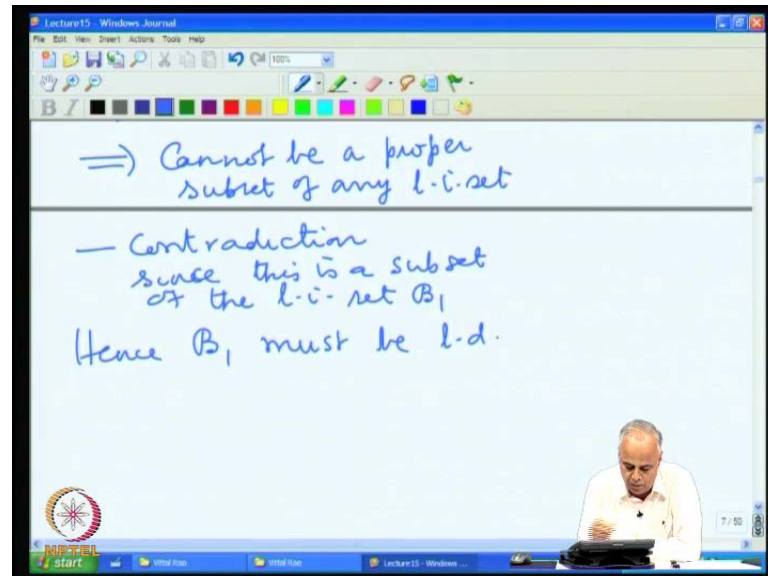 Lecture15 - Windows Journal
File Edit View Insert Actions Tools Help
100%
B I
⟹ Cannot be a proper
subset of any l.i.set
— Contradiction
since this is a subset
of the l.i. set B₁
Hence B₁ must be l.d.
7 / 50
NPTEL
start
Vittal Rao
Vittal Rao
Lecture15 - Windows ...